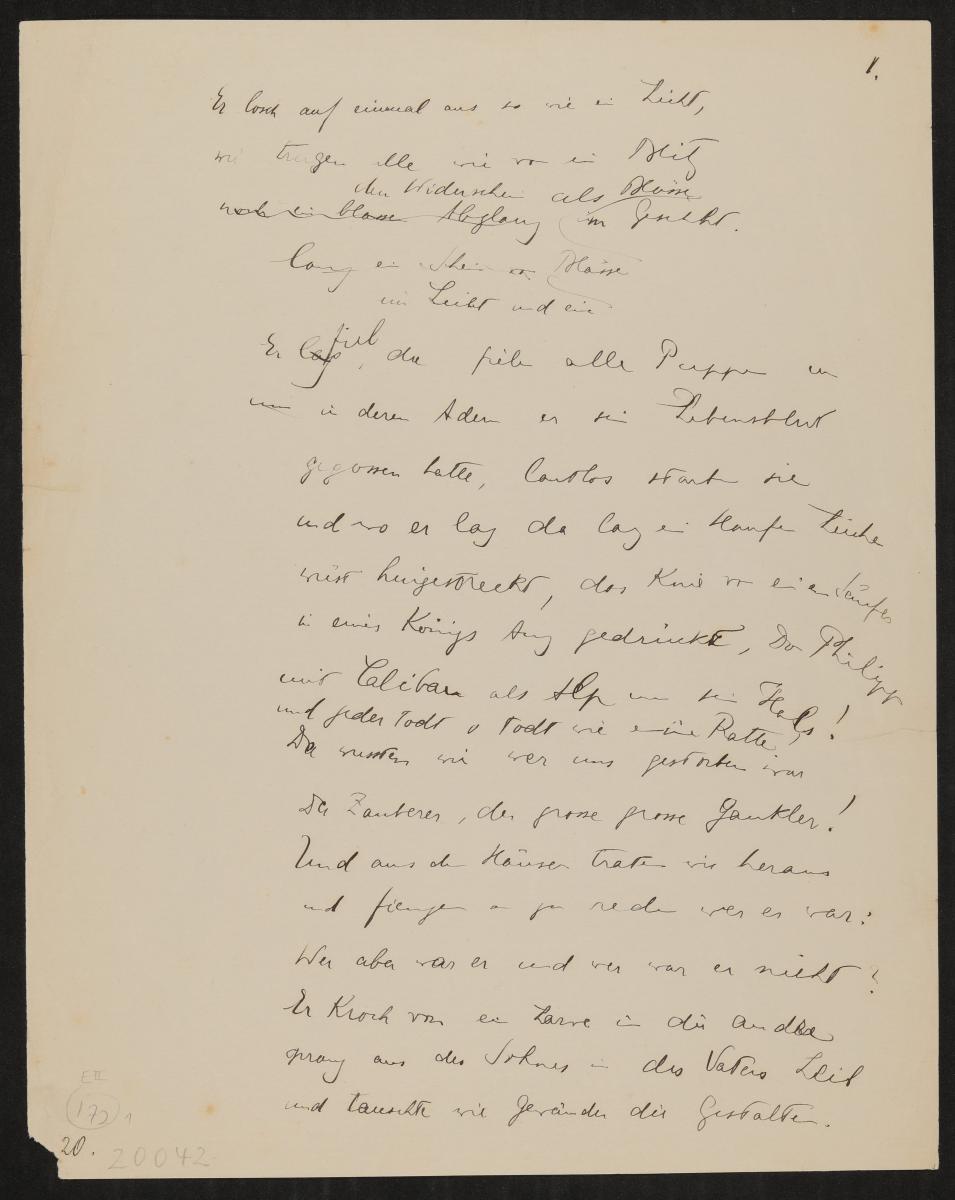 1.
Er losch auf einmal aus so wie ein Licht,
wir trugen alle wie von ein Blitz
den Widerschein als Blässe
noch ein blasser Abglanz im Gesicht.
lang ein Schein von Blässe
im Licht und ein
Er lag fiel, da fielen alle Puppen um
um in deren Adern er sein Lebensblut
gegossen hatte, lautlos starben sie
und wo er lag da lag ein Haufen Leichen
wüst hingestreckt, das Knie von einem Säufer
in eines Königs Aug gedrückt, Don Philipp
mit Caliban als Alp um sein Hals!
und jeder todt
Da wussten wir wer uns gestorben war
Der Zauberer, der grosse grosse Gaukler!
Und aus den Häusern traten wir heraus
und fiengen an zu reden wer er war:
Wer aber war er und wer war er nicht?
Er kroch von ein Larve in die andre
sprang aus des Sohnes in des Vaters Leib
und tauschte wie Gewänder die Gestalten.
E II
172 1
20.
20042